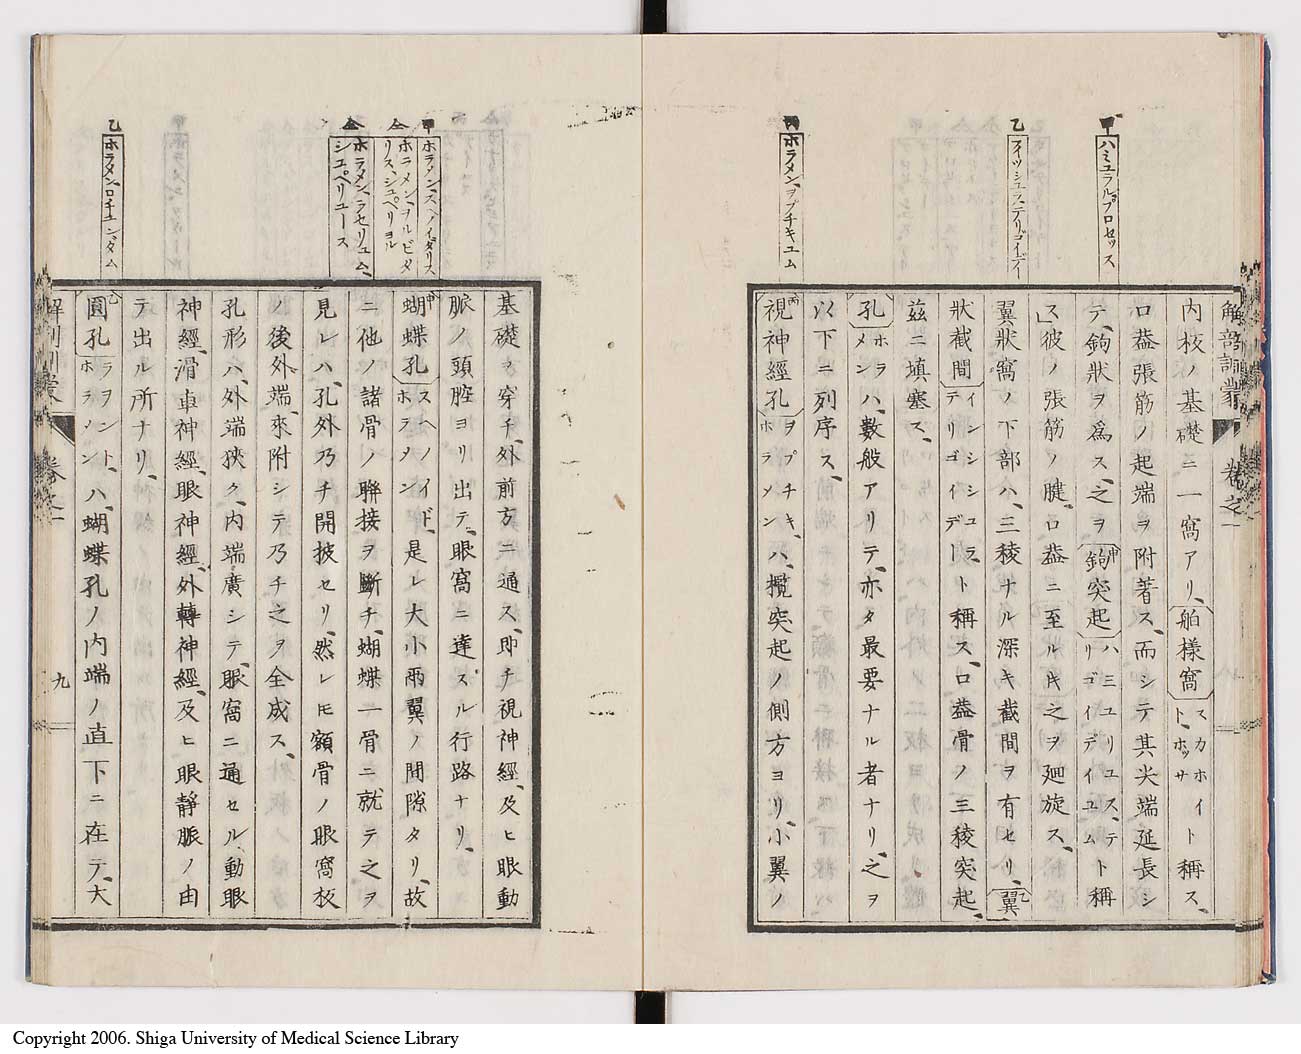 解剖訓蒙 卷之一
甲 ハミユラルプロセッス
乙 フイッシユラ、テリゴイデイ
丙 ホラメン、ヲプチキユム
内校ノ基礎ニ一窩アリ、舶様窩スカホイト稱ス、ト、ホッサ
口葢張筋ノ起端ヲ附著ス、而シテ其尖端延長シ
テ、鉤狀ヲ爲ス、之ヲ甲鉤突起ハミユリユス、テト稱リゴイデイユム
ス、彼ノ張筋ノ腱、口葢ニ至ルキ之ヲ廻旋ス、
翼狀窩ノ下部ハ、三稜ナル深キ截間ヲ有セリ、乙翼
狀截間インシシユラ、テリゴイデート稱ス、口葢骨ノ三稜突起、
茲ニ填塞ス、
孔ホラメンハ、數般アリテ、亦タ最要ナル者ナリ、之ヲ
以下ニ列序ス、
丙視神經孔ヲプチキホラメンハ、攬突起ノ側方ヨリ、小翼ノ
甲 ホラメン、スヘノイダリス
仝 ホラメン、ヲルビタリス、シュペリヨル
仝 ホラメン、ラセリュム、シユペリユース
乙 ホラメン、ロチュンダム
基礎ヲ穿チ、外前方ニ通ス、即チ視神經、及ヒ眼動
脈ノ頭腔ヨリ出テ、眼窩ニ達スル行路ナリ、
甲蝴蝶孔スヘノイドホラメン、是レ大小兩翼ノ間隙タリ、故
ニ他ノ諸骨ノ聯接ヲ斷チ、蝴蝶一骨ニ就テ之ヲ
見レハ、孔外乃チ開披セリ、然レヒ額骨ノ眼窩板
ノ後外端、來附シテ乃チ之ヲ全成ス、
孔形ハ、外端狹ク、内端廣シテ、眼窩ニ通セル、動眼
神經、滑車神經、眼神經、外轉神經、及ヒ眼靜脈ノ由
テ出ル所ナリ、
乙圓孔ラヲンドホラメンハ、蝴蝶孔ノ内端ノ直下ニ在テ、大
解剖訓蒙 卷之一 九
Copyright 2006. Shiga University of Medical Science Library